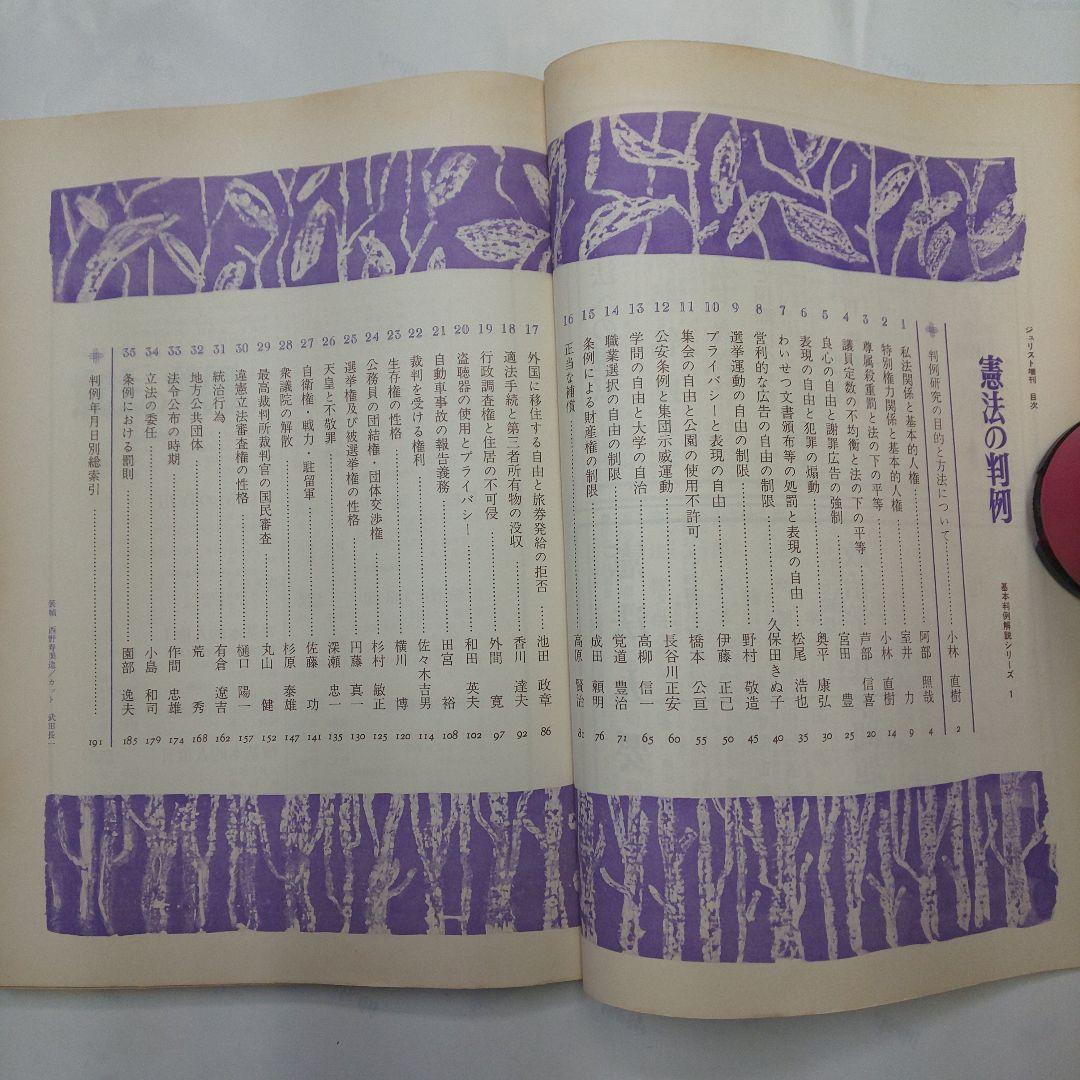 ジュリスト増刊 目次
憲法の判例
基本判例解説シリーズ 1
判例研究の目的と方法について……小林 直樹 2
1 私法関係と基本的人権……阿部 照哉 4
2 特別権力関係と基本的人権……室井 力 9
3 尊属殺重罰と法の下の平等……小林 直樹 14
4 議員定数の不均衡と法の下の平等……芦部 信喜 20
5 良心の自由と謝罪広告の強制……宮田 豊 25
6 表現の自由と犯罪の煽動……奥平 康弘 30
7 わいせつ文書頒布等の処罰と表現の自由……松尾 浩也 35
8 営利的な広告の自由の制限……久保田きぬ子 40
9 選挙運動の自由の制限……野村 敬造 45
10 プライバシーと表現の自由……伊藤 正己 50
11 集会の自由と公園の使用不許可……橋本 公亘 55
12 公安条例と集団示威運動……長谷川正安 60
13 学問の自由と大学の自治……高柳 信一 65
14 職業選択の自由の制限……覚道 豊治 71
15 条例による財産権の制限……成田 頼明 76
16 正当な補償……高原 賢治 81
17 外国に移住する自由と旅券発給の拒否……池田 政章 86
18 適法手続と第三者所有物の没収……香川 達夫 92
19 行政調査権と住居の不可侵……外間 寛 97
20 盗聴器の使用とプライバシー……和田 英夫 102
21 自動車事故の報告義務……田宮 裕 108
22 裁判を受ける権利……佐々木吉男 114
23 生存権の性格……横川 博 120
24 公務員の団結権・団体交渉権……杉村 敏正 125
25 選挙権及び被選挙権の性格……円藤 真一 130
26 天皇と不敬罪……深瀬 忠一 135
27 自衛権・戦力・駐留軍……佐藤 功 141
28 衆議院の解散……杉原 泰雄 147
29 最高裁判所裁判官の国民審査……丸山 健 152
30 違憲立法審査権の性格……樋口 陽一 157
31 統治行為……有倉 遼吉 162
32 地方公共団体……荒 秀 168
33 法令公布の時期……作間 忠雄 174
34 立法の委任……小島 和司 179
35 条例における罰則……園部 逸夫 185
判例年月日別総索引……191
装幀 西野寿美造/カット 武田長一